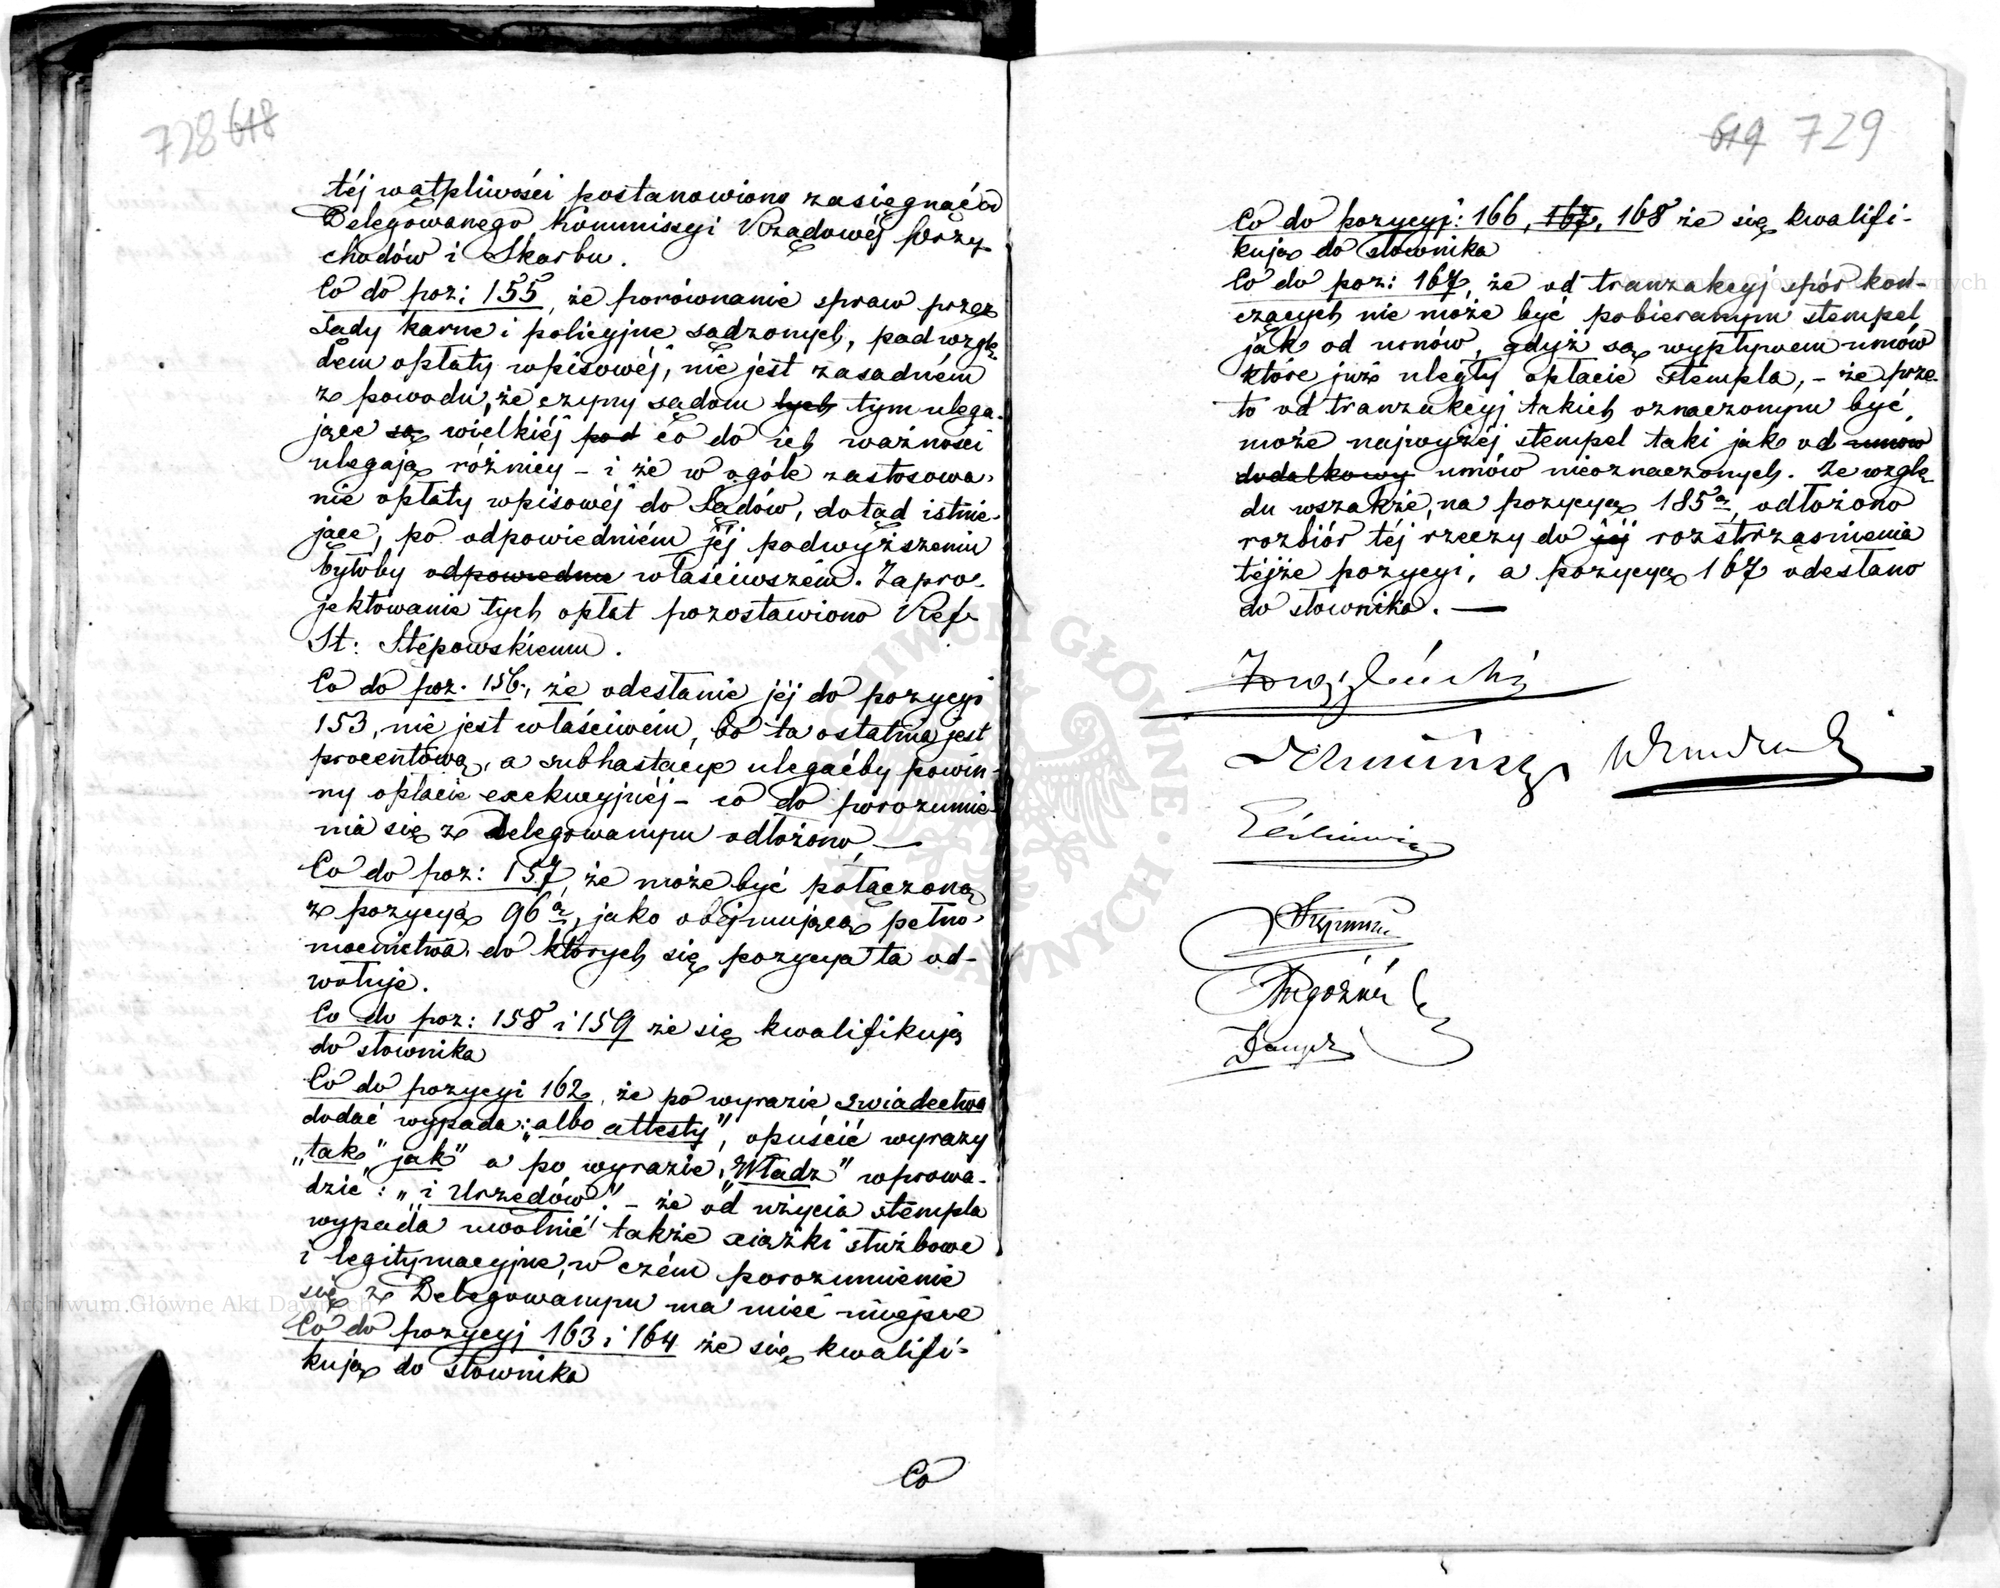 728 618
téj wątpliwości postanowiono zasięgnąć od
Delegowanego Kommissyi Rządowéj Przy
chodów i Skarbu.
Co do poz: 155, że porównanie spraw przez
Sądy karne i policyjne sądzonych, pod wzglę
dem opłaty wpisowéj, nie jest zasadném
z powodu, że czyny sądom tych tym ulega-
jące są wielkiéj pod co do ich ważności
ulegają różnicy – i że w ogóle zastosowa-
nie opłaty wpisowéj do Sądów, dotąd istnie-
jącé, po odpowiedniém jéj podwyższeniu
byłoby odpowiednie właściwszém. Zapro-
jektowanie tych opłat pozostawiono Ref.
St: Stępowskiemu.
Co do poz. 156, że odesłanie jéj do pozycyi
153, nie jest właściwém, bo ta ostatnia jest
procentową, a subhastacye ulegaćby powin-
ny opłacie exekucyjnéj – co do porozumie-
nia się z Delegowanym odłożono. —
Co do poz: 157, że może być połączoną
z pozycyą 96ą, jako obejmującą pełno-
mocnictwa do których się pozycya ta od-
wołuje.
Co do poz: 158 i 159 że się kwalifikują
do słownika
Co do pozycyi 162, że po wyrazie świadectwa
dodać wypada: „albo attesty”, opuścić wyrazy
„tak” „jak” a po wyrazie „Władz” wprowa-
dzić: „i Urzędów.” – że od użycia stempla
wypada uwolnić także xiążki służbowe
i legitymacyjne, w czém porozumienie
się z Delegowanym ma mieć miejsce
Co do pozycyj 163 i 164 że się kwalifi-
kują do słownika
Co
619 729
Co do pozycyj: 166, 167, 168 że się kwalifi-
kują do słownika
Co do poz: 167, że od tranzakcyj spór koń-
czących nie może być pobieranym stempel
jak od umów, gdyż są wypływem umów
które już uległy opłacie stempla, – że prze-
to od tranzakcyj takich oznaczonym być
może najwyżéj stempel taki jak od umów
dodatkowy umów nieoznaczonych. Ze wzglę-
du wszakże, na pozycyą 185ą, odłożono
rozbiór téj rzeczy do jéj roztrząśnienia
téjże pozycyi, a pozycyą 167 odesłano
do słownika. —
Archiwum Główne Akt Dawnych
Archiwum Główne Akt Dawnych
ARCHIWUM GŁÓWNE AKT DAWNYCH